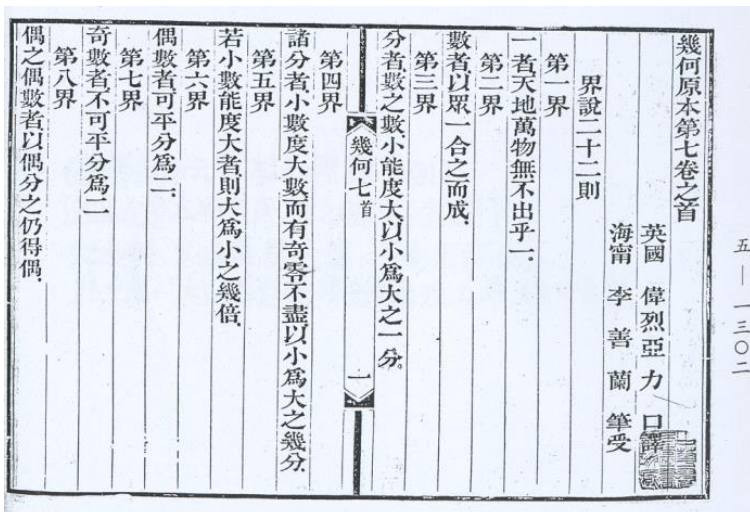 幾何原本第七卷之首
英國 偉烈亞力 口譯
海甯 李善蘭 筆受
界說二十二則
第一界
一者天地萬物無不出乎一.
第二界
數者以眾一合之而成.
第三界
分者數之數小能度大以小爲大之一分。
幾何七 首
一
第四界
諸分者小數度大數而有奇零不盡以小爲大之幾分.
第五界
若小數能度大者則大爲小之幾倍.
第六界
偶數者可平分爲二.
第七界
奇數者不可平分爲二
第八界
偶之偶數者以偶分之仍得偶.
五—一三〇二